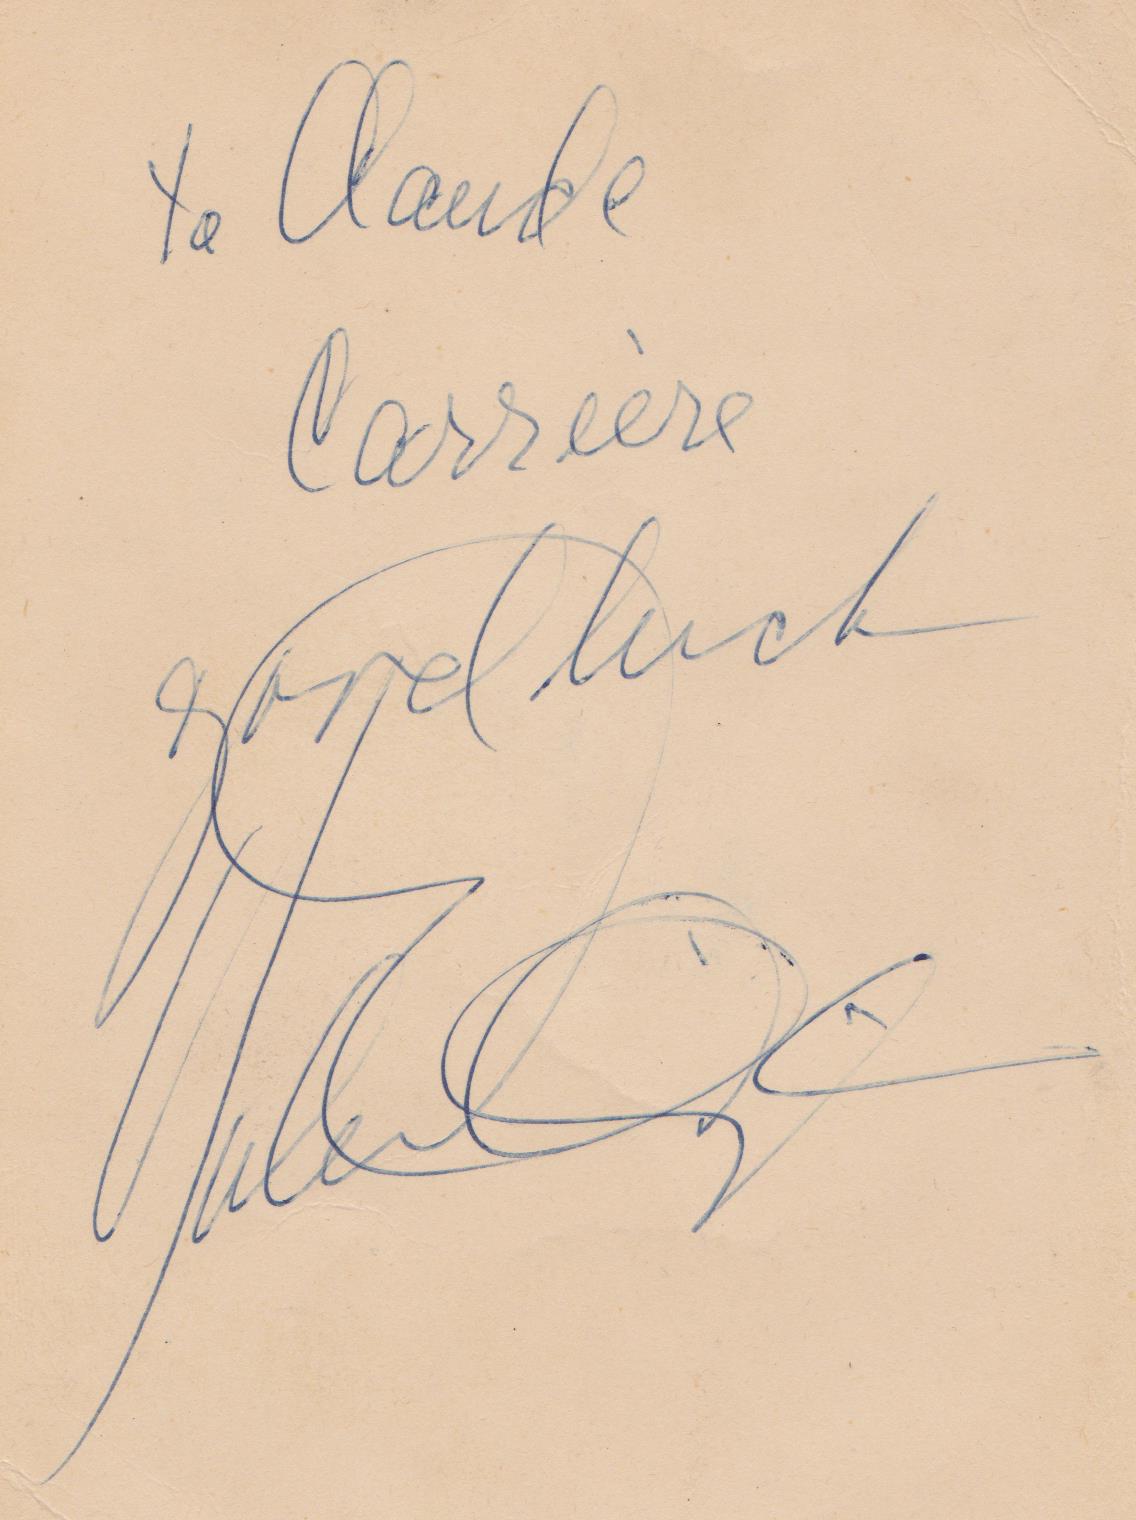 To Claude
Carrière
good luck